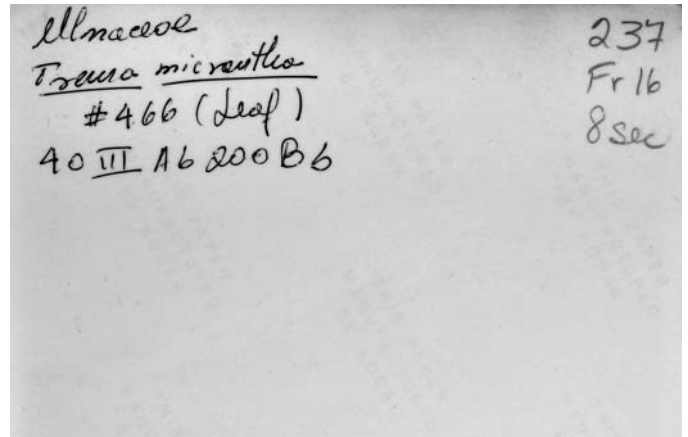 Ulmaceae
Trema micrantha
#466 (Leaf)
40 III A6 200 B6
237
Fr 16
8 sec